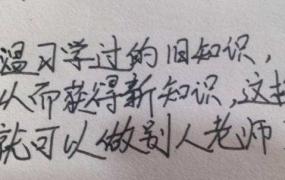 温习学过的旧知识，
从而获得新知识，这
就可以做别人老师